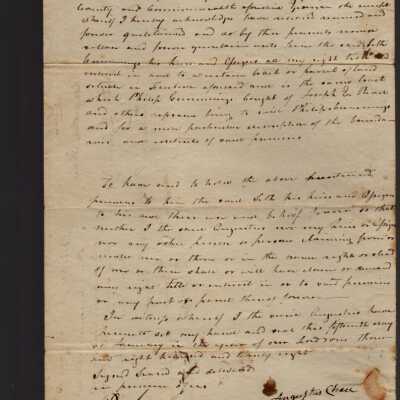 County and Commonwealth aforesaid Yeoman the receipt
whereof I hereby acknowledge have remised released and
forever quitclaimed and do by these presents remise
release and forever quitclaim unto him the said Seth
Cummings his heirs and Assigns all my right title and
interest in and to a certain tract or parcel of land
situate in aforesaid and is the same tract
which Philip Cummings bought of Joseph
and others reference being to said Philip Cummings
deed for a more particular description of the bounda-
ries and contents of said premises
To have and to hold the above mentioned
premises to him the said Seth his heirs and Assigns
to his and their use and behoof forever so that
neither I the said Augustus nor my heirs or Assigns
nor any other person or persons claiming from or
under me or them or in the name right or stead
of me or them shall or will have claim or demand
any right title or interest in or to said premises
or any part or parcel thereof forever
In witness whereof I the said Augustus have
hereunto set my hand and seal this fifteenth day
of January in the year of our Lord one thous-
and eight hundred and twenty eight
Signed Sealed and delivered
in presence of us
Augustus Chase